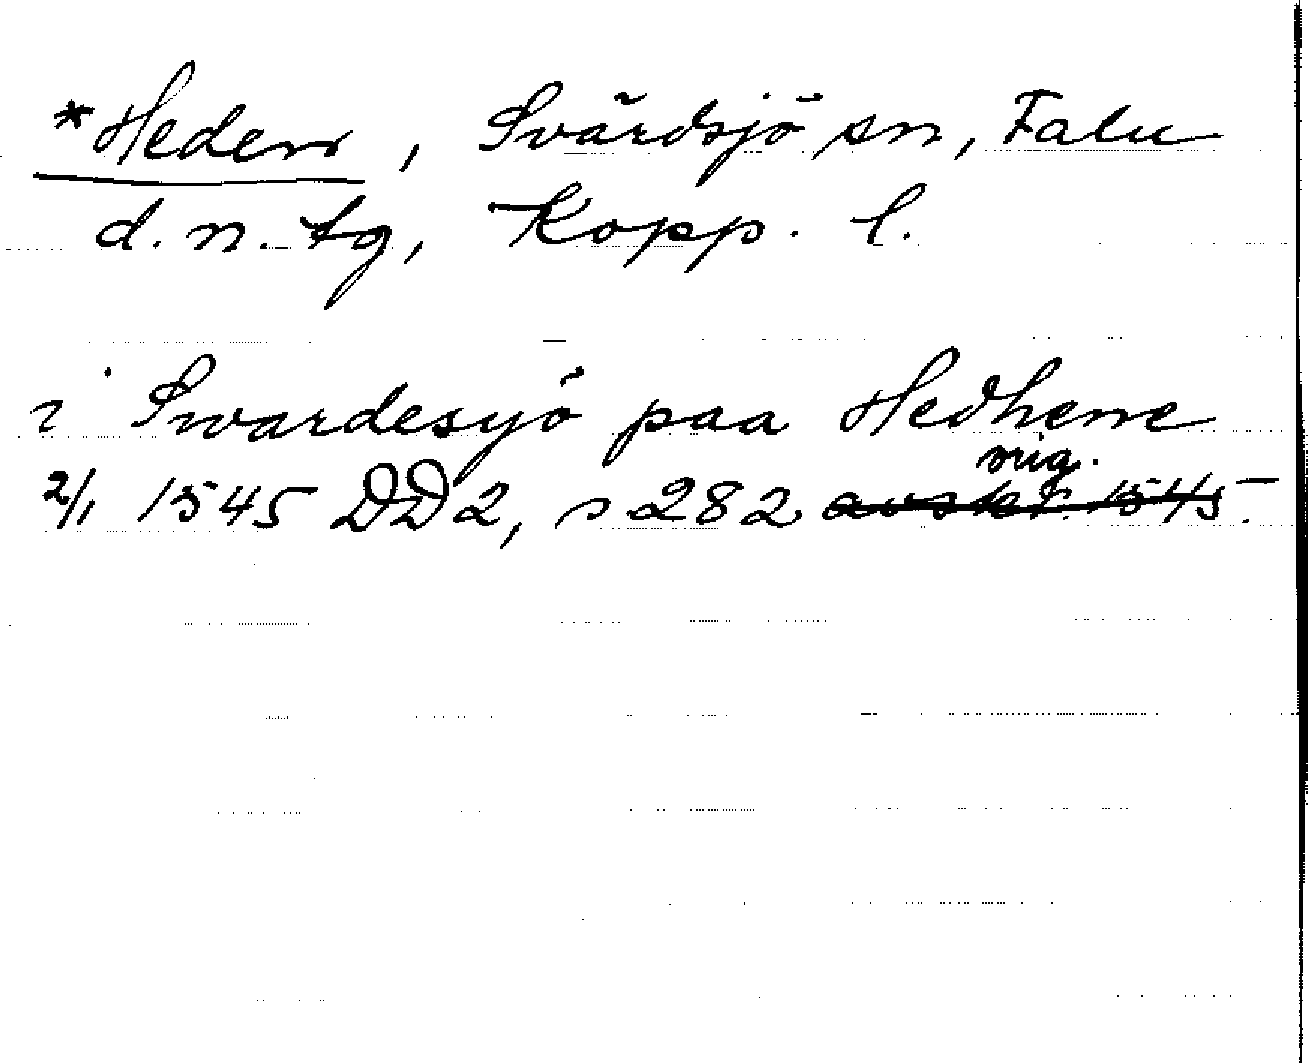 *Heden, Svärdsjö sn, Falu
d. n. tg, Kopp. l.
i Swardesyö paa Hedhene
orig.
2/1 1545 DD2, s 282 avskr. 1545.